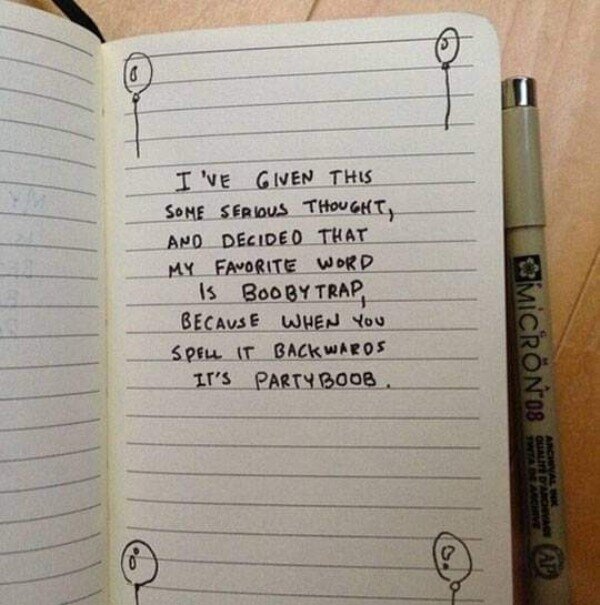 I'VE GIVEN THIS
SOME SERIOUS THOUGHT,
AND DECIDED THAT
MY FAVORITE WORD
IS BOOBYTRAP,
BECAUSE WHEN YOU
SPELL IT BACKWARDS
IT'S PARTYBOOB.
MICRON 08
ARCHIVAL INK